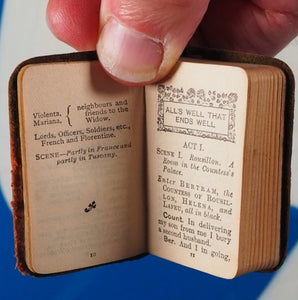 Violenta, neighbours and
Mariana, friends to the
Widow.
Lords, Officers, Soldiers, etc.,
French and Florentine.
SCENE—Partly in France and
partly in Tuscany.
10
ALL'S WELL THAT
ENDS WELL
ACT I.
SCENE I. Rousillon. A
Room in the Countess's
Palace.
Enter BERTRAM, the
COUNTESS OF ROUSIL-
LON, HELENA, and
LAFEU, all in black.
Count. In delivering
my son from me I bury
a second husband.
Ber. And I in going,
11